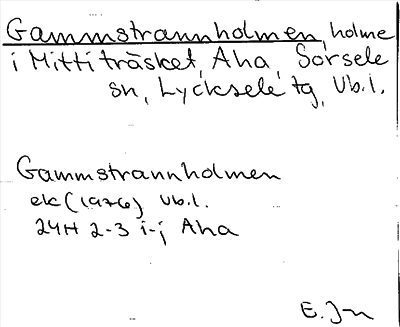 Gammstrannholmen, holme
i Mittiträsket, Aha, Sorsele
sn, Lycksele tg, Vb.l.
Gammstrannholmen
ek (1976) Vb.l.
24H 2-3 i-j Aha
E. Jn